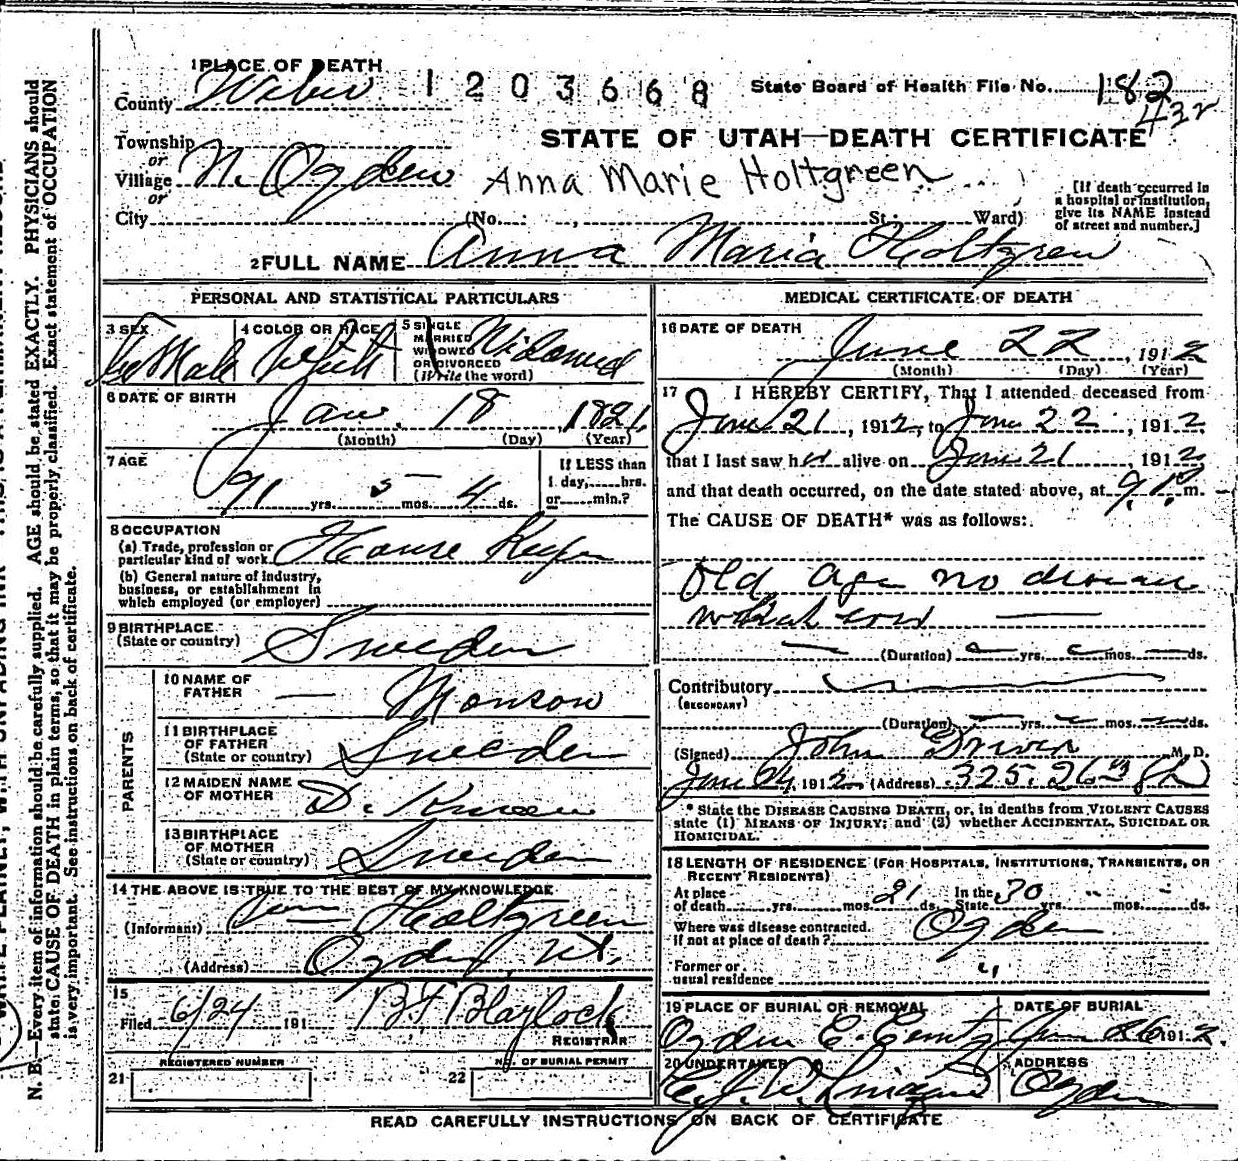 1 PLACE OF DEATH
County Weber
1203668
State Board of Health File No. 182
432
STATE OF UTAH—DEATH CERTIFICATE
Township
or
Village N. Ogden
or
Anna Marie Holtgreen
City (No. , St.; Ward)
[If death occurred in
a hospital or institution,
give its NAME instead
of street and number.]
2 FULL NAME Anna Maria Holtgren
PERSONAL AND STATISTICAL PARTICULARS
3 SEX
4 COLOR OR RACE
5 SINGLE
MARRIED
WIDOWED
OR DIVORCED
(Write the word)
Widowed
6 DATE OF BIRTH
Jan. 18, 1821
(Month) (Day) (Year)
7 AGE
91 yrs. 5 mos. 4 ds.
If LESS than
1 day, hrs.
or min.?
8 OCCUPATION
(a) Trade, profession or
particular kind of work House Keeper
(b) General nature of industry,
business, or establishment in
which employed (or employer)
9 BIRTHPLACE
(State or country) Sweden
PARENTS
10 NAME OF
FATHER — Monson
11 BIRTHPLACE
OF FATHER
(State or country) Sweden
12 MAIDEN NAME
OF MOTHER
13 BIRTHPLACE
OF MOTHER
(State or country) Sweden
14 THE ABOVE IS TRUE TO THE BEST OF MY KNOWLEDGE
(Informant) Holtgreen
(Address) Ogden, Ut.
15
Filed 6/24 191 B F Blaylock
REGISTRAR
REGISTERED NUMBER
21
NO. OF BURIAL PERMIT
22
MEDICAL CERTIFICATE OF DEATH
16 DATE OF DEATH
June 22, 1912
(Month) (Day) (Year)
17 I HEREBY CERTIFY, That I attended deceased from
June 21, 1912, to June 22, 1912.
that I last saw her alive on June 21, 1912
and that death occurred, on the date stated above, at 9.1 P.m.
The CAUSE OF DEATH* was as follows:
Old Age no disease
(Duration) yrs. mos. ds.
Contributory
(SECONDARY)
(Duration) yrs. mos. ds.
(Signed) John Driver M. D.
June 24, 1912 (Address) 325. 26th St
* State the DISEASE CAUSING DEATH, or, in deaths from VIOLENT CAUSES
state (1) MEANS OF INJURY; and (2) whether ACCIDENTAL, SUICIDAL OR
HOMICIDAL.
18 LENGTH OF RESIDENCE (FOR HOSPITALS, INSTITUTIONS, TRANSIENTS, OR
RECENT RESIDENTS)
At place
of death yrs. mos. 21 ds. In the
State 30 yrs. " mos. " ds.
Where was disease contracted,
if not at place of death? Ogden
Former or
usual residence "
19 PLACE OF BURIAL OR REMOVAL
Ogden C.
DATE OF BURIAL
June 26 1912.
20 UNDERTAKER
ADDRESS
Ogden
READ CAREFULLY INSTRUCTIONS ON BACK OF CERTIFICATE
N. B.—Every item of information should be carefully supplied. AGE should be stated EXACTLY. PHYSICIANS should
state CAUSE OF DEATH in plain terms, so that it may be properly classified. Exact statement of OCCUPATION
is very important. See instructions on back of certificate.